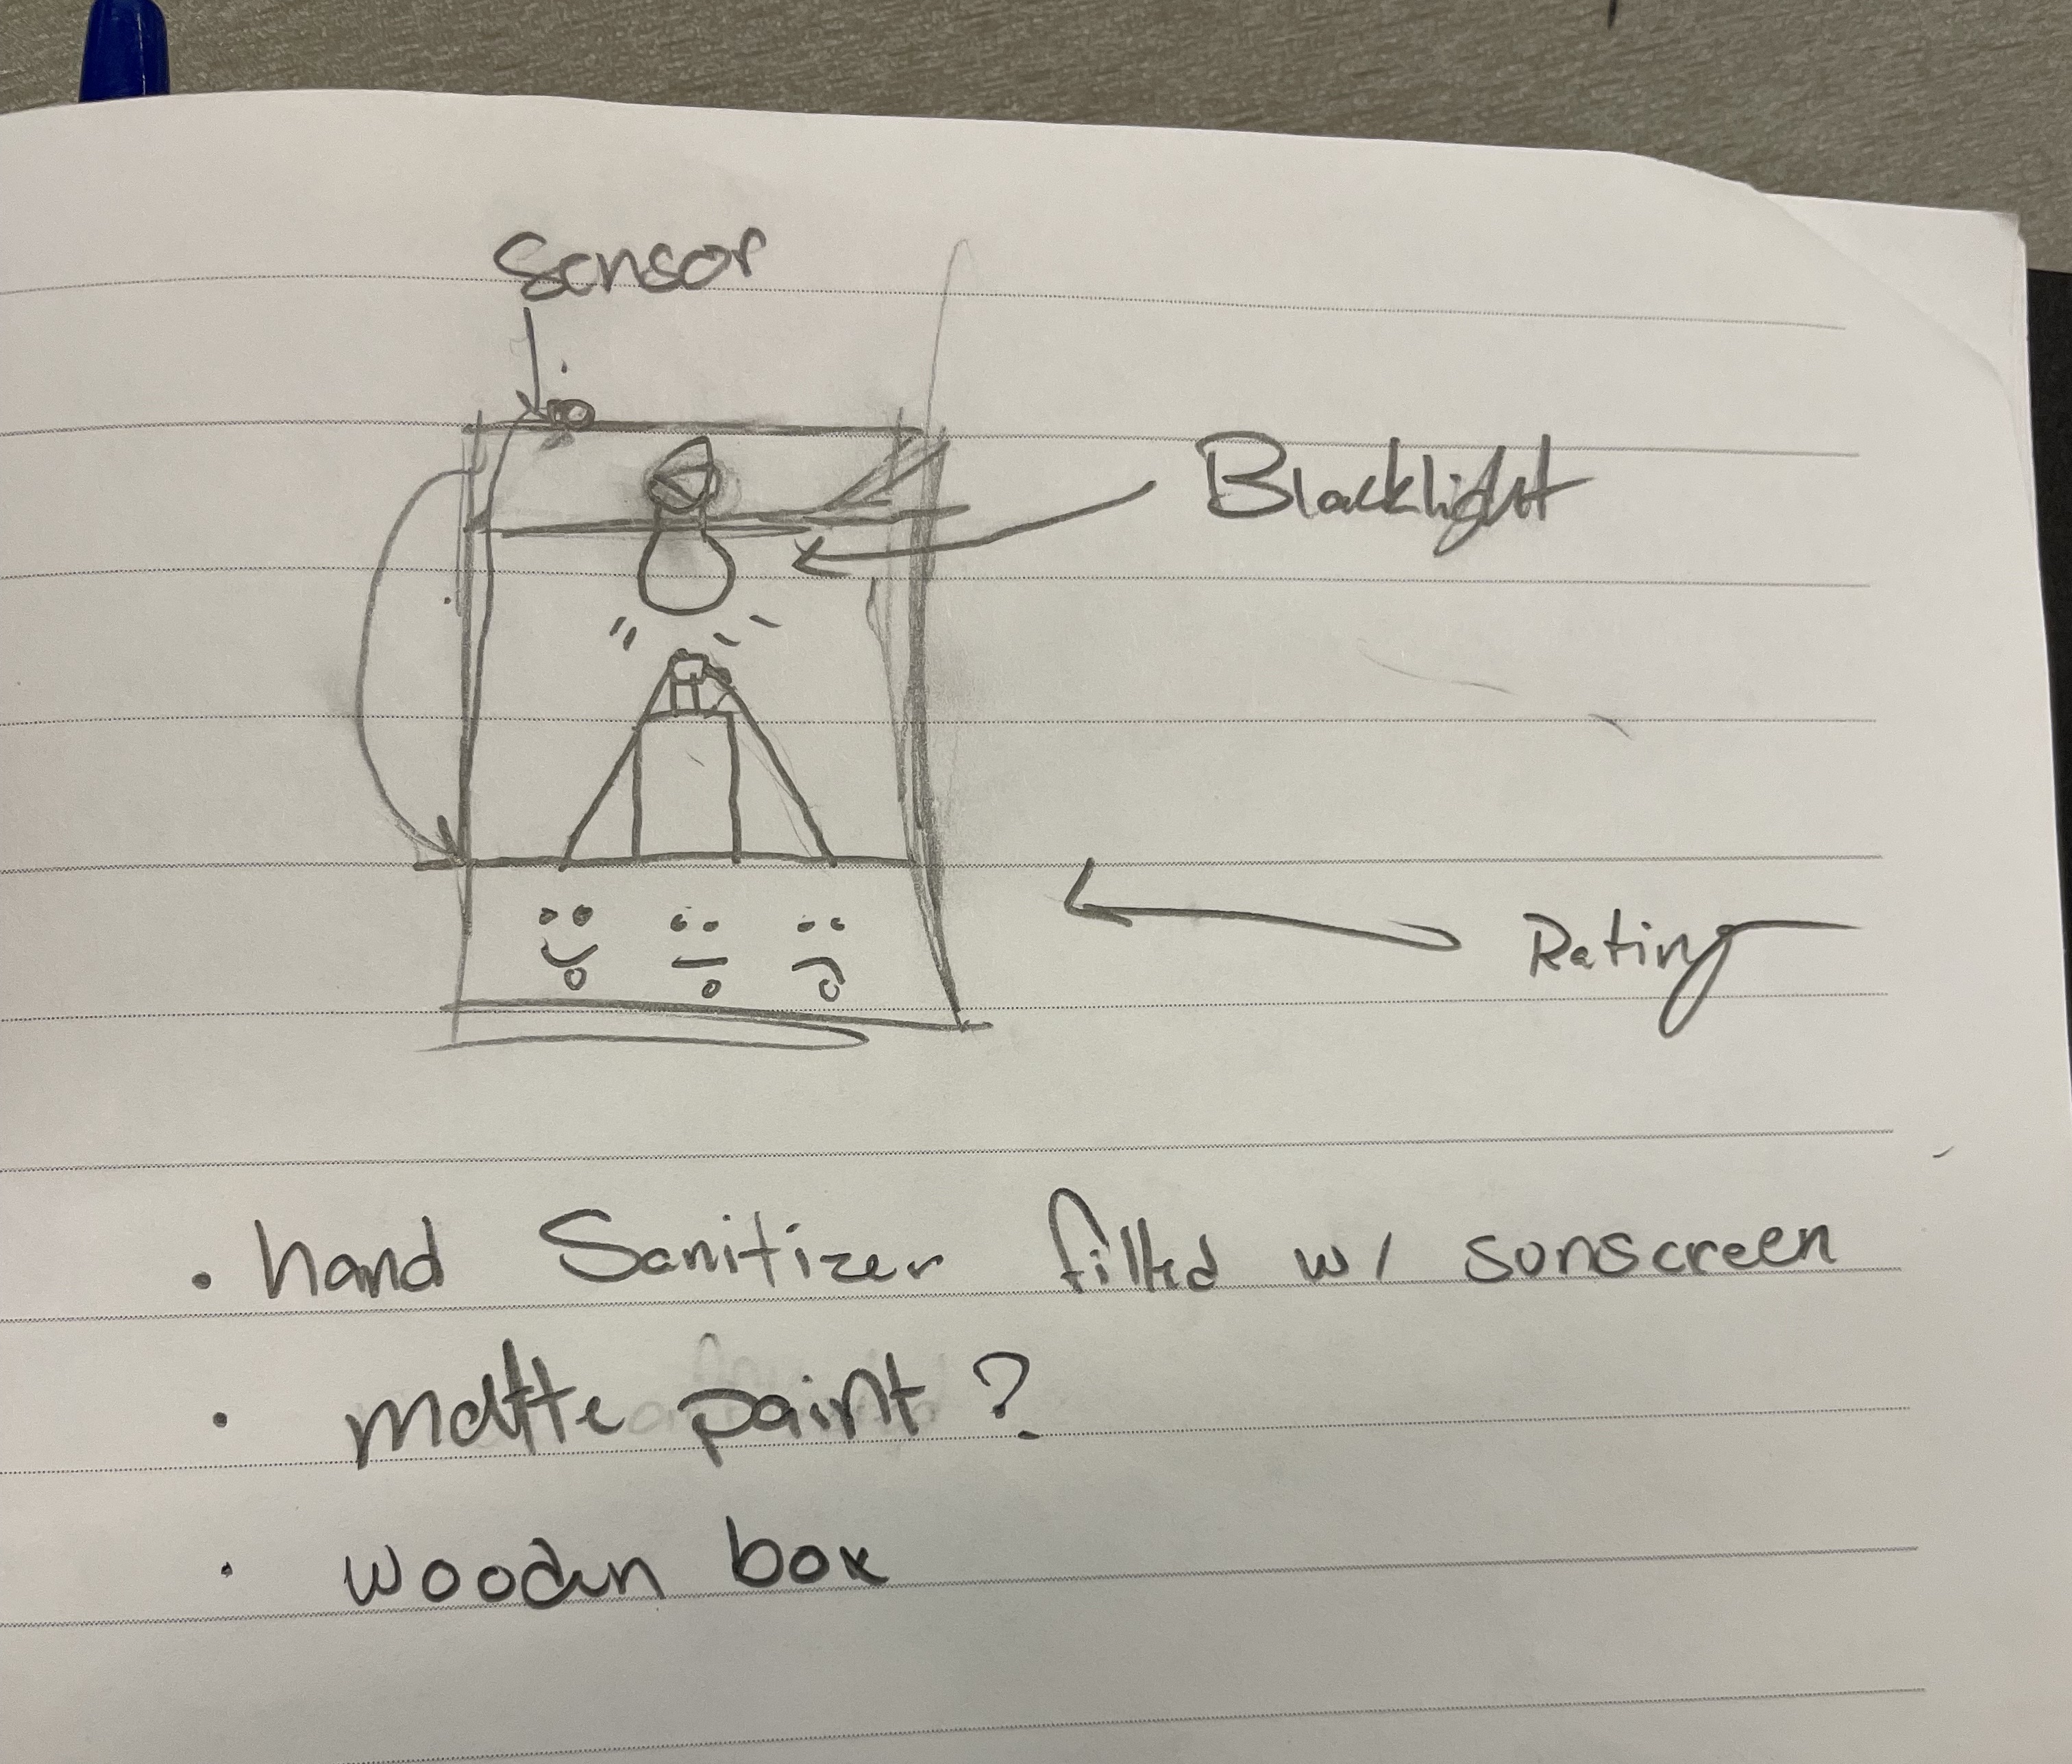 Sensor
Blacklight
Rating
• hand Sanitizer filled w/ sunscreen
• matte paint?
• wooden box